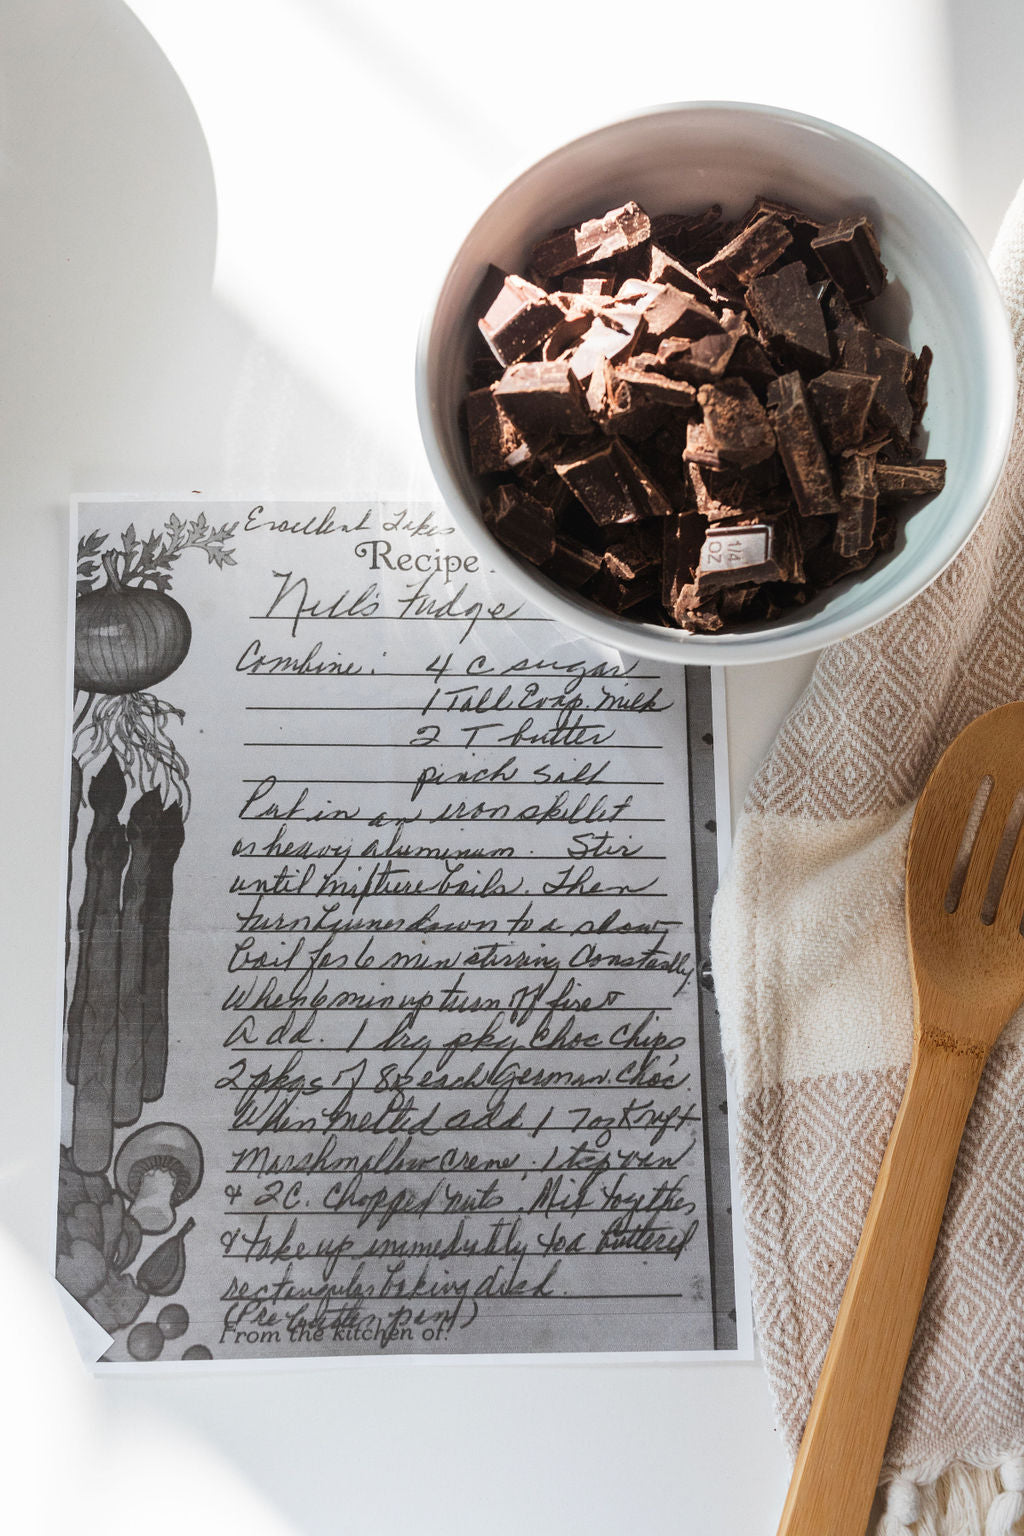 Excellent Takes
Recipe
Nell's Fudge
Combine: 4 C sugar
1 Tall Evap. Milk
2 T butter
pinch salt
Put in an iron skillet
or heavy aluminum. Stir
until mixture boils. Then
turn burner down to a slow
boil for 6 min stirring Constantly
When 6 min up turn off fire &
Add. 1 lrg pkg choc chips
2 pkgs of 8oz each German. Choc.
When melted add 1 7oz Kraft
Marshmallow Creme. 1 tsp van
& 2C. chopped nuts. Mix together
& take up immediatly to a buttered
rectangular baking dish.
(Pre butter pan)
From the kitchen of:
1/4
OZ